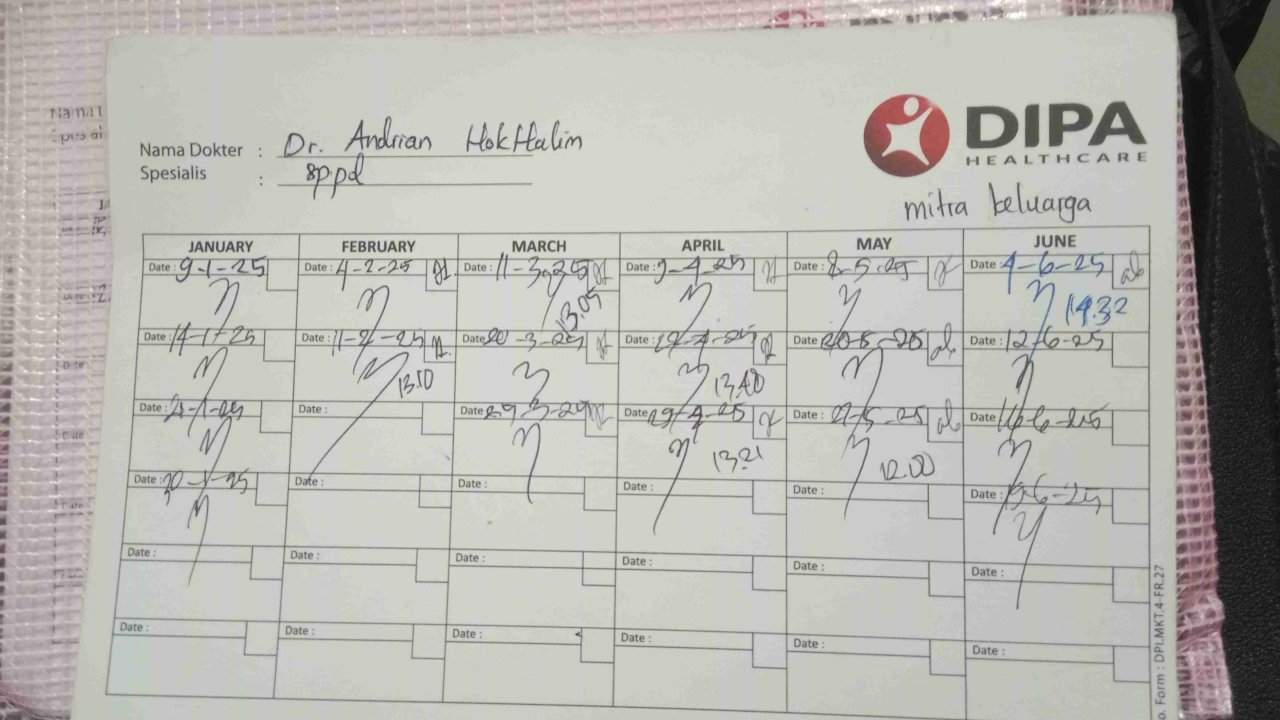 DIPA
HEALTHCARE
Nama Dokter : Dr. Andrian HokHalim
Spesialis : sppd
mitra keluarga
JANUARY FEBRUARY MARCH APRIL MAY JUNE
Date : 9-1-25 Date : 4-2-25 Date : 11-3-25 Date : Date : 8-5-25 Date : 4-6-25
13.05 14.32
Date : 14-1-25 Date : 11-2-25 Date : 20-3-25 Date : Date : 20-5-25 Date : 12-6-25
13.10 13.40
Date : 21-1-25 Date : Date : 29-3-25 Date : 29-4-25 Date : 27-5-25 Date : 16-6-25
13.21 12.00
Date : 30-1-25 Date : Date : Date : Date : Date : 19-6-25
Date : Date : Date : Date : Date : Date :
Date : Date : Date : Date : Date : Date :
o. Form : DPI.MKT.4-FR.27